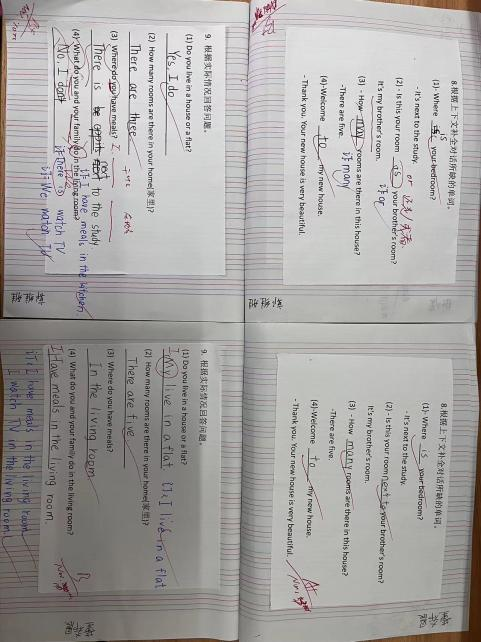 8.根据上下文补全对话所缺的单词。
(1)- Where is your bedroom?
- It's next to the study.
(2) - Is this your room is your brother's room?
or
订or
It's my brother's room.
(3) - How many rooms are there in this house?
订many
-There are five.
(4)-Welcome to my new house.
- Thank you. Your new house is very beautiful.
9. 根据实际情况回答问题。
(1) Do you live in a house or a flat?
Yes, I do
(2) How many rooms are there in your home(家里)?
There are three
(3) Where do you have meals?
There is next to the study
订I have meals in the kitchen.
(4) What do you and your family do in the living room?
No, I don't
watch TV
订:We watch TV
8.根据上下文补全对话所缺的单词。
(1)- Where is your bedroom?
- It's next to the study.
(2) - Is this your room next to your brother's room?
It's my brother's room.
(3) - How many rooms are there in this house?
-There are five.
(4)-Welcome to my new house.
- Thank you. Your new house is very beautiful.
9. 根据实际情况回答问题。
(1) Do you live in a house or a flat?
I My live in a flat. 订, I live in a flat
(2) How many rooms are there in your home(家里)?
There are five
(3) Where do you have meals?
In the living room
(4) What do you and your family do in the living room?
I Have meals in the living room.
订 I have meals in the living room
I watch TV in the living room